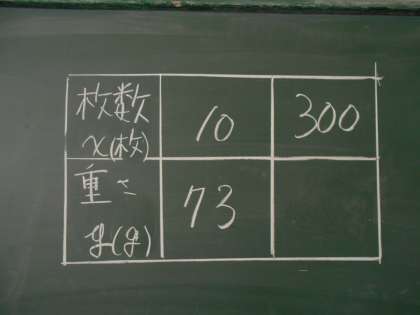 枚数
x(枚)
10
300
重さ
y(g)
73